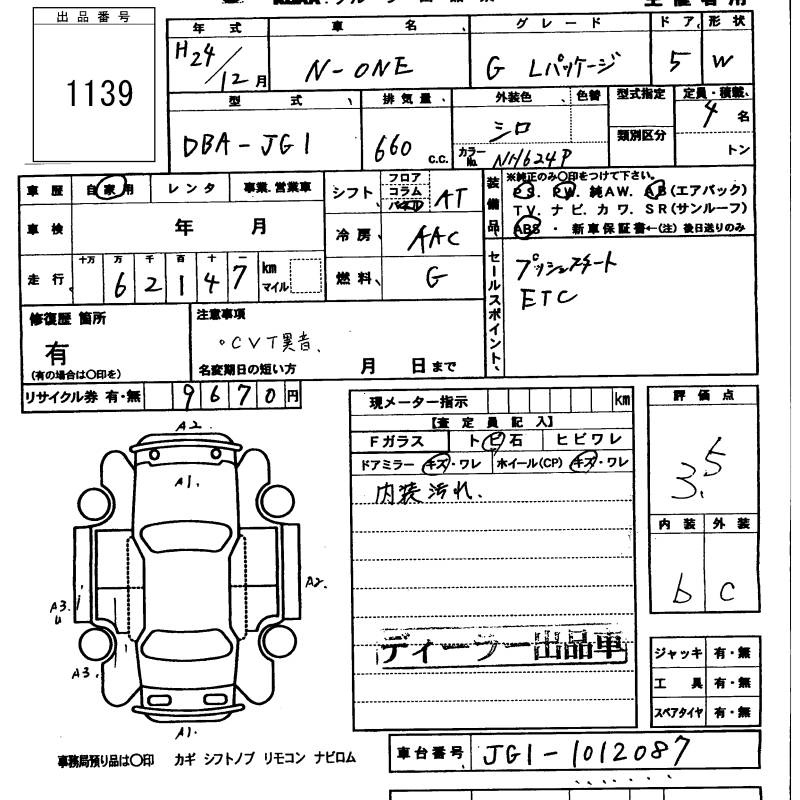 出品番号
1139
年式 車名 グレード ドア 形状
H24/12月 N-ONE G Lパッケージ 5 W
型式 排気量 外装色 色替 型式指定 定員・積載
DBA-JG1 660 c.c. シロ カラーNo. NH624P 類別区分 4名 トン
車歴 自家用 レンタ 事業.営業車
シフト フロア コラム パネル AT
装備品 ※純正のみ〇印をつけて下さい。
PS. PW. 純AW. AB(エアバック)
TV. ナビ. カワ. SR(サンルーフ)
ABS ・ 新車保証書←(注) 後日送りのみ
車検 年 月
冷房 AAC
走行 十万 万 千 百 十 一
62147 km マイル
燃料 G
セールスポイント
プッシュスタート
ETC
修復歴 箇所
有
(有の場合は〇印を)
注意事項
・CVT異音.
名変期日の短い方 月 日まで
リサイクル券 有・無 9670円
現メーター指示 km
【査定員記入】
Fガラス トビ石 ヒビワレ
ドアミラー キズ・ワレ ホイール(CP) キズ・ワレ
内装汚れ.
評価点
3.5
内装 外装
b C
A2.
A1.
A2.
A3.
u
A3.
A1.
ディーラー出品車
ジャッキ 有・無
工具 有・無
スペアタイヤ 有・無
事務局預り品は〇印 カギ シフトノブ リモコン ナビロム
車台番号 JG1-1012087